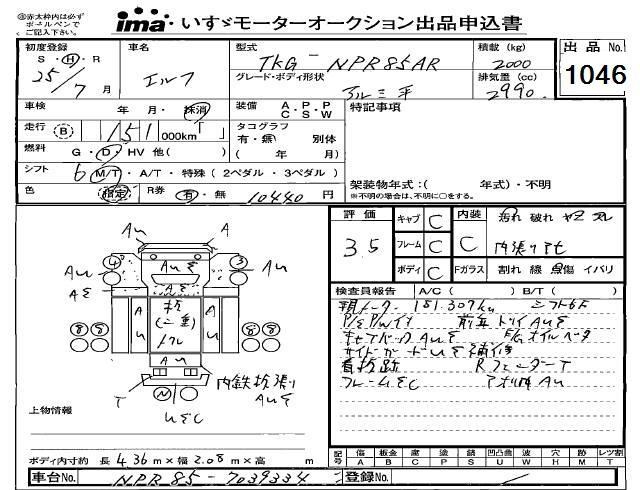 ㊟赤太枠内は必ず
ボールペンで
ご記入下さい。
ima いすゞモーターオークション出品申込書
初度登録 車名 型式 積載 (kg) 出品 No.
S・H・R エルフ TKG-NPR85AR 2000 1046
25/7 月 グレード・ボディ形状 排気量 (cc)
アルミ平 2990
車検 年 月・抹消 装備 A・P・P 特記事項
C S W
走行 B 151 000km「 」 タコグラフ
有・無 別体
燃料 G・D・HV 他( ) ( 年 月)
シフト 6 M/T・A/T・特殊 ( 2ペダル・3ペダル )
架装物年式:( 年式)・不明
色 指定 R券 有・無 10440 円 ※不明の場合は、不明に○をする。
評価 キャブ C 内装 汚れ 破れ ヤニ スレ
3.5 フレーム C C 内張りアセ
ボディ C Fガラス 割れ 線 点傷 イバリ
検査員報告 A/C ( ) B/T ( )
現メーター 151.307km シフト6F
キャブバックAuΣ
サイドガードUΣ補修
看板跡 RフェンダーT
フレームΣC アオリ内Au
A
Au 4 AuΣ 3 Au
AΣ AΣ
8 8 Au 板(二重)トル Au 8 8
Au
T N 内鉄板張り
AuΣ
UΣC
上物情報
ボディ内寸約 長 4.36 m×幅 2.08 m×高 m
記号 傷 板金 腐 塗 錆 凹凸曲 波 穴 跡 レンズ割
A B C P S U W H M T
車台No. NPR85-7039334 登録No.